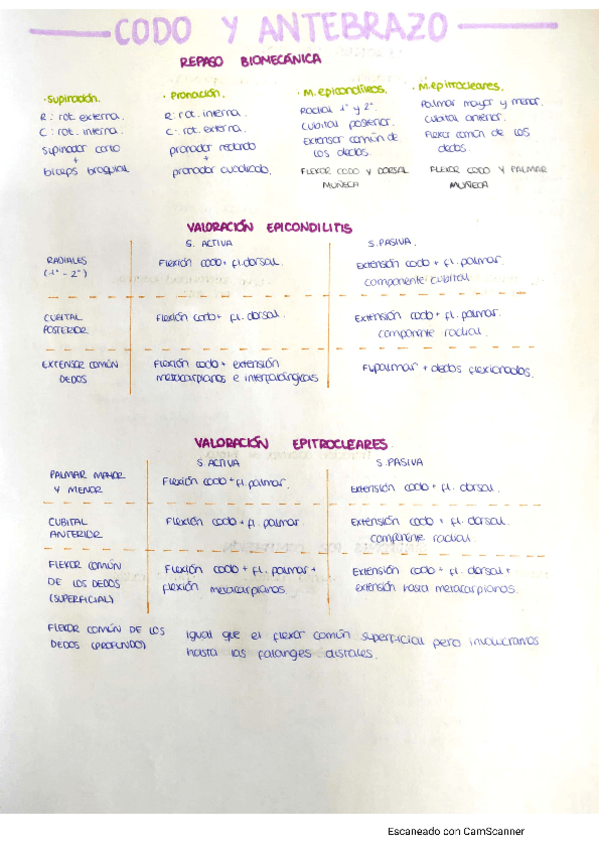 CODO Y ANTEBRAZO
REPASO BIOMECÁNICA
· Supinación.
R: rot. externa.
C: rot. interna.
supinador corto
+
biceps braquial
· Pronación.
R: rot. interna.
C: rot. externa.
pronador redondo
+
pronador cuadrado.
· M. epicondíleos.
Radial 1º y 2º.
Cubital posterior.
Extensor común de
los dedos.
FLEXOR CODO Y DORSAL
MUÑECA
· M. epitrocleares.
Palmar mayor y menor.
Cubital anterior.
Flexor común de los
dedos.
FLEXOR CODO Y PALMAR
MUÑECA
VALORACIÓN EPICONDILITIS
S. ACTIVA
S. PASIVA.
RADIALES
(1º - 2º)
Flexión codo + fl. dorsal.
Extensión codo + fl. palmar
componente cubital
CUBITAL
POSTERIOR
Flexión codo + fl. dorsal.
Extensión codo + fl. palmar.
componente radial.
EXTENSOR COMÚN
DEDOS
Flexión codo + extensión
metacarpianos e interfalángicas
Fl. palmar + dedos flexionados.
VALORACIÓN EPITROCLEARES
S. ACTIVA
S. PASIVA
PALMAR MAYOR
Y MENOR
Flexión codo + fl. palmar.
Extensión codo + fl. dorsal.
CUBITAL
ANTERIOR
Flexión codo + fl. palmar.
Extensión codo + fl. dorsal.
componente radial.
FLEXOR COMÚN
DE LOS DEDOS
(SUPERFICIAL)
Flexión codo + fl. palmar +
flexión metacarpianos.
Extensión codo + fl. dorsal +
extensión hasta metacarpianos.
FLEXOR COMÚN DE LOS
DEDOS (PROFUNDO)
Igual que el flexor común superficial pero involucramos
hasta las falanges distales.
Escaneado con CamScanner